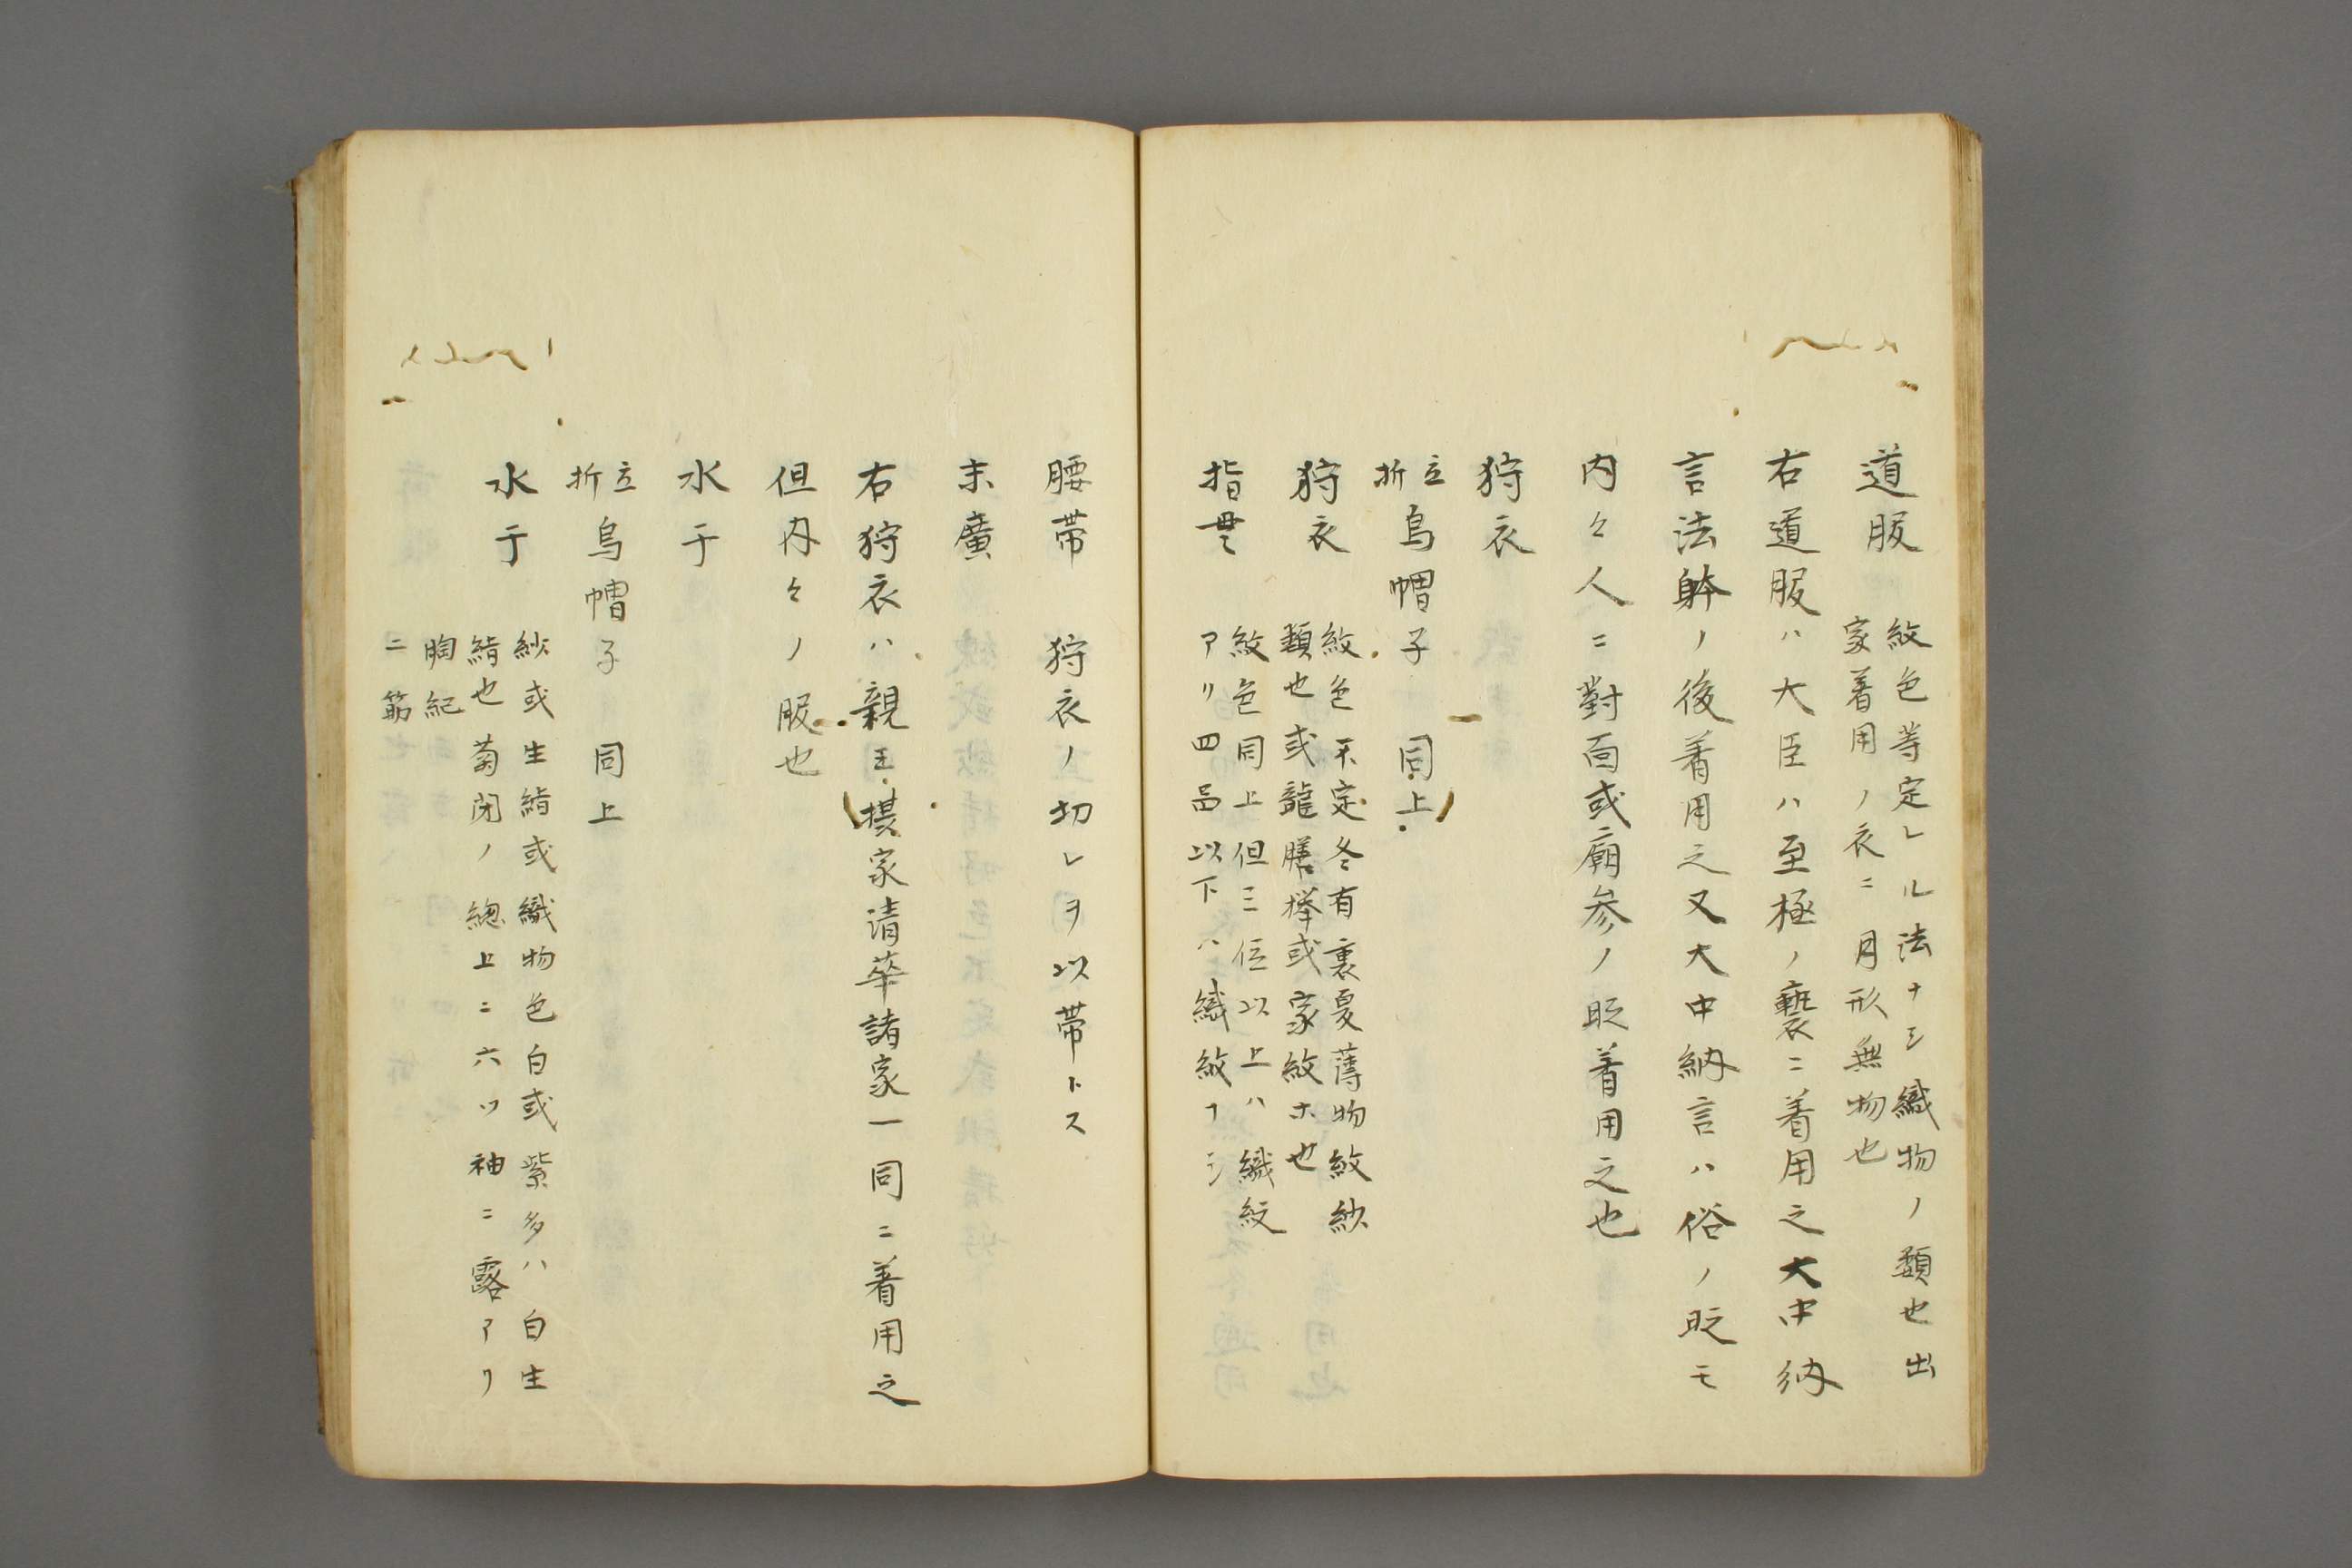 道服
紋色等定レル法ナシ織物ノ類也出
家着用ノ衣ニ月形無物也
右道服ハ大臣ハ至極ノ褻ニ着用之大中納
言法躰ノ後着用之又大中納言ハ俗ノ時モ
内々人ニ對面或廟参ノ時着用之也
狩衣
立折烏帽子 同上
狩衣
紋色不定冬有裏夏薄物紋紗
類也或龍膽欅或家紋ホ也
指貫
紋色同上但三位以上ハ織紋
アリ四品以下ハ織紋ナシ
腰帯 狩衣ノ切レヲ以帯トス
末廣
右狩衣ハ親王摂家清華諸家一同ニ着用之
但内々ノ服也
水干
立折烏帽子 同上
水干
紗或生絹或織物色白或紫多ハ白生
絹也菊閉ノ總上ニ六ツ袖ニ露アリ
胸紀
二筋